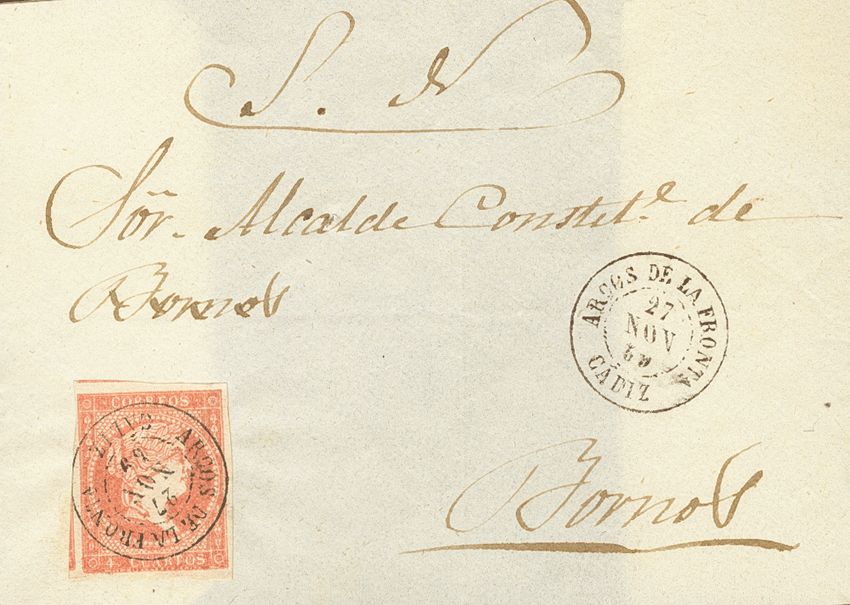 S. N
Sõr. Alcalde Constitl. de
Bornos
ARCOS DE LA FRONTA
27
NOV
CÁDIZ
CORREOS
ARCOS DE LA FRONTA
27
NOV
CADIZ
4 CUARTOS
Bornos